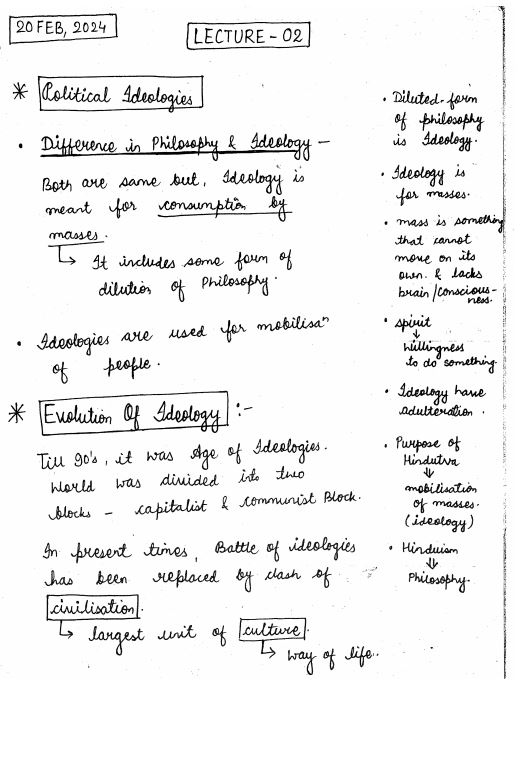 20 FEB, 2024
LECTURE - 02
* Political Ideologies
• Difference in Philosophy & Ideology –
Both are same but, Ideology is
meant for consumption by
masses.
↳ It includes some form of
dilution of Philosophy.
• Ideologies are used for mobilisan
of people.
* Evolution Of Ideology :-
Till 90's, it was Age of Ideologies.
World was divided into two
blocks – capitalist & Communist Block.
In present times, Battle of ideologies
has been replaced by clash of
civilisation.
↳ largest unit of culture.
↳ way of life.
• Diluted form
of philosophy
is Ideology.
• Ideology is
for masses.
• mass is something
that cannot
move on its
own. & lacks
brain/conscious-
ness.
• spirit
↓
willingness
to do something.
• Ideology have
adulteration.
• Purpose of
Hindutva
⇓
mobilisation
of masses.
(ideology)
• Hinduism
⇓
Philosophy.